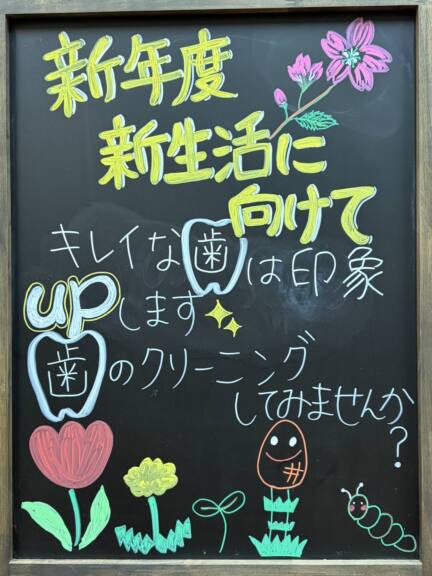 新年度
新生活に
向けて
キレイな歯は印象
upします
歯のクリーニング
してみませんか
?